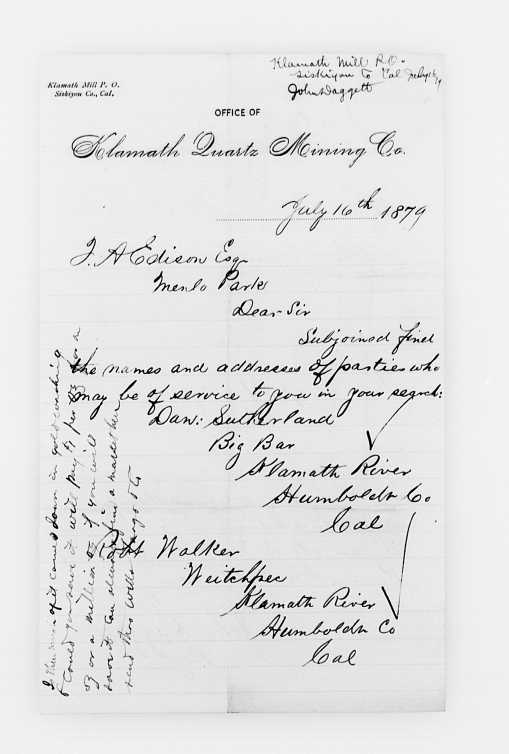 Klamath Mill P.O.
Siskiyou Co Cal July 16/79
John Daggett
Klamath Mill P. O.
Siskiyou Co., Cal.
OFFICE OF
Klamath Quartz Mining Co.
July 16th 1879
T. A Edison Esq
Menlo Park
Dear Sir
Subjoined find
the names and addresses of parties who
may be of service to you in your search:
Dan: Sutherland
Big Bar
Klamath River
Humboldt Co
Cal
Robt Walker
Weitchpec
Klamath River
Humboldt Co
Cal
If there is any of it comes down in gold washing
& could you save it I will pay $ per oz for a
oz or a million oz if you will
save it can always find a market here
send this Wells Fargo